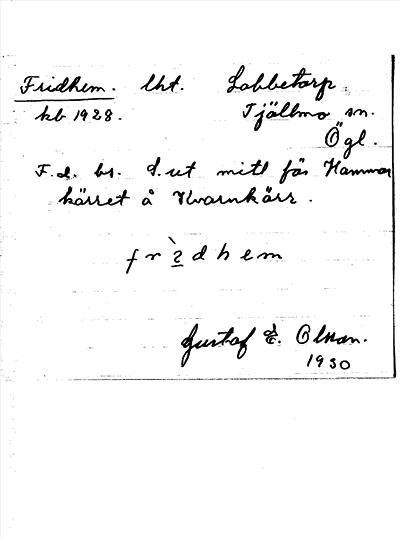 Fridhem. lht. Labbetorp.
kb 1928. Tjällmo sn.
Ögl.
F.d. bs. S.ut mitl fås Hammar
kärret å Kvarnkärr.
f r ì d h e m
Gustaf E. Olsson.
1930